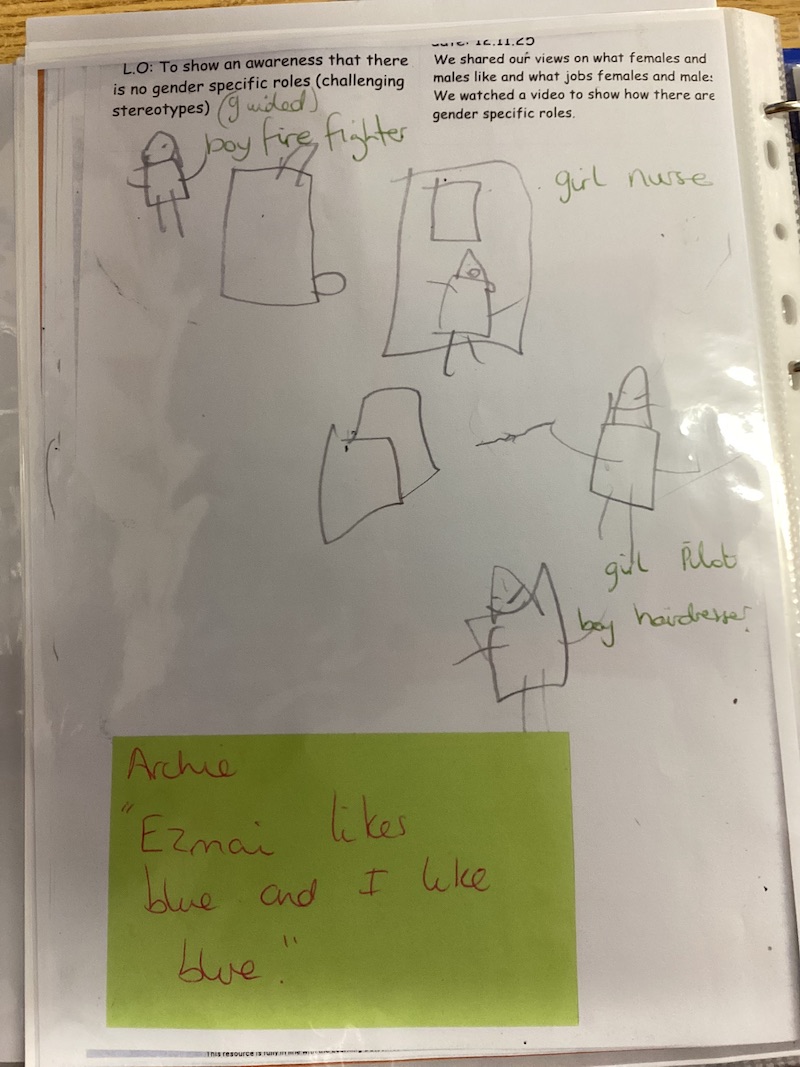 L.O: To show an awareness that there
is no gender specific roles (challenging
stereotypes) (guided)
date: 12.11.25
We shared our views on what females and
males like and what jobs females and males
We watched a video to show how there are
gender specific roles.
boy fire fighter
girl nurse
girl Pilot
boy hairdresser
Archie
"Ezmai likes
blue and I like
blue."
This resource is fully in line with the